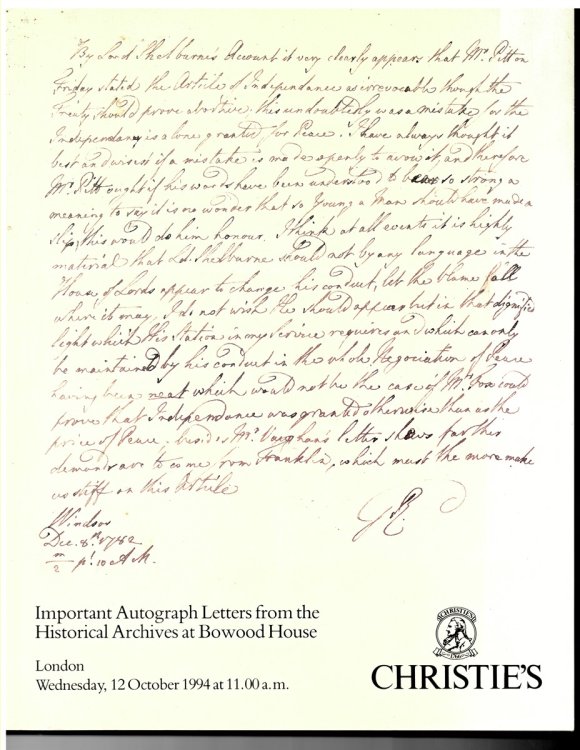 By Lord Shelburne's Account it very clearly appears that Mr. Pitt on
Friday stated the Article of Independence as irrevocable though the
Treaty should prove abortive. this undoubtedly was a mistake for the
Independency is alone granted for Peace. I have always thought it
best and wisest if a mistake is made openly to avow it, and therefore
Mr. Pitt ought if his words have been understood to bear so strong a
meaning to say it is no wonder that so young a Man should have made a
slip; this would do him honour. I think at all events it is highly
material that Ld. Shelburne should not by any language in the
House of Lords appear to change his conduct, let the blame fall
where it may. I do not wish He should appear but in that dignified
light which His station in my service requires and which can only
be maintained by his conduct in the whole Negociation of Peace
having been neat which would not be the case if Mr. Fox could
prove that Independence was granted otherwise than as the
price of Peace. besides Mr. Vaughan's letter shews further
demands are to come from Franklin, which must the more make
us stiff on this Article
GR.
Windsor
Dec. 8th. 1782
m/2 pt. 10 AM.
Important Autograph Letters from the
Historical Archives at Bowood House
London
Wednesday, 12 October 1994 at 11.00 a.m.
CHRISTIE'S
1766
CHRISTIE'S